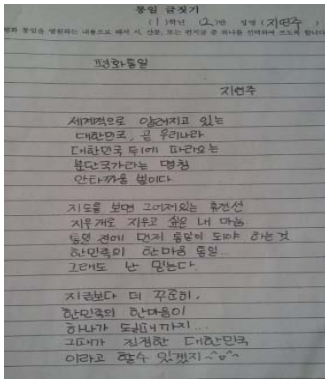 통일 글짓기
(1)학년 (2)반 성명 (지연주)
평화 통일을 염원하는 내용으로 해서 시, 산문, 또는 편지글 중 하나를 선택하여 쓰도록 합니다
평화통일
지연주
세계적으로 알려지고 있는
대한민국, 곧 우리나라
대한민국 뒤에 따라오는
분단국가라는 명칭
안타까울 뿐이다.
지도를 보면 그어져있는 휴전선
지우개로 지우고 싶은 내 마음
통일 전에 먼저 통일이 되야 하는 것
한민족의 한마음 통일...
그래도 난 믿는다
지금보다 더 꾸준히,
한민족의 한마음이
하나가 될때까지...
그때가 진정한 대한민국
이라고 할수 있겠지~^o^~